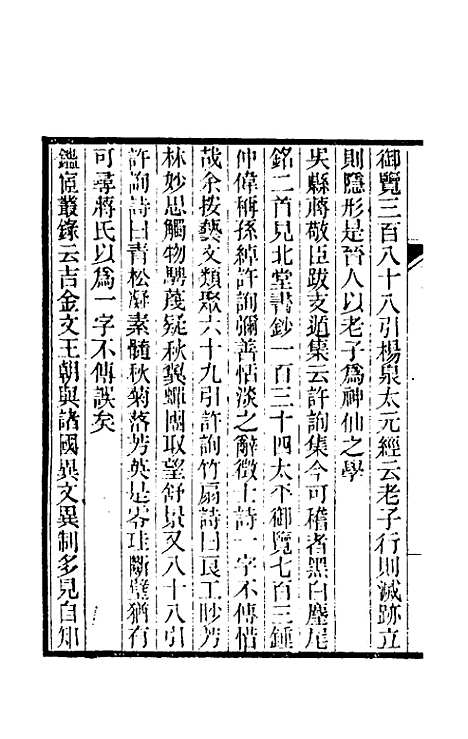 御覽三百八十八引楊泉太元經云老子行則滅跡立
則隱形是晉人以老子爲神仙之學
吳縣蔣敬臣跋支遁集云許詢集今可稽者黑白麈尾
銘二首見北堂書鈔一百三十四太平御覽七百三鍾
仲偉稱孫綽許詢彌善恬淡之辭徵士詩一字不傳惜
哉余按藝文類聚六十九引許詢竹扇詩曰良工眇芳
林妙思觸物騁蔑疑秋翼蟬團取望舒景又八十八引
許詢詩曰青松凝素髓秋菊落芳英是零珪斷璧猶有
可尋蔣氏以爲一字不傳誤矣
鑑宧叢錄云吉金文王朝與諸國異文異制多見自知